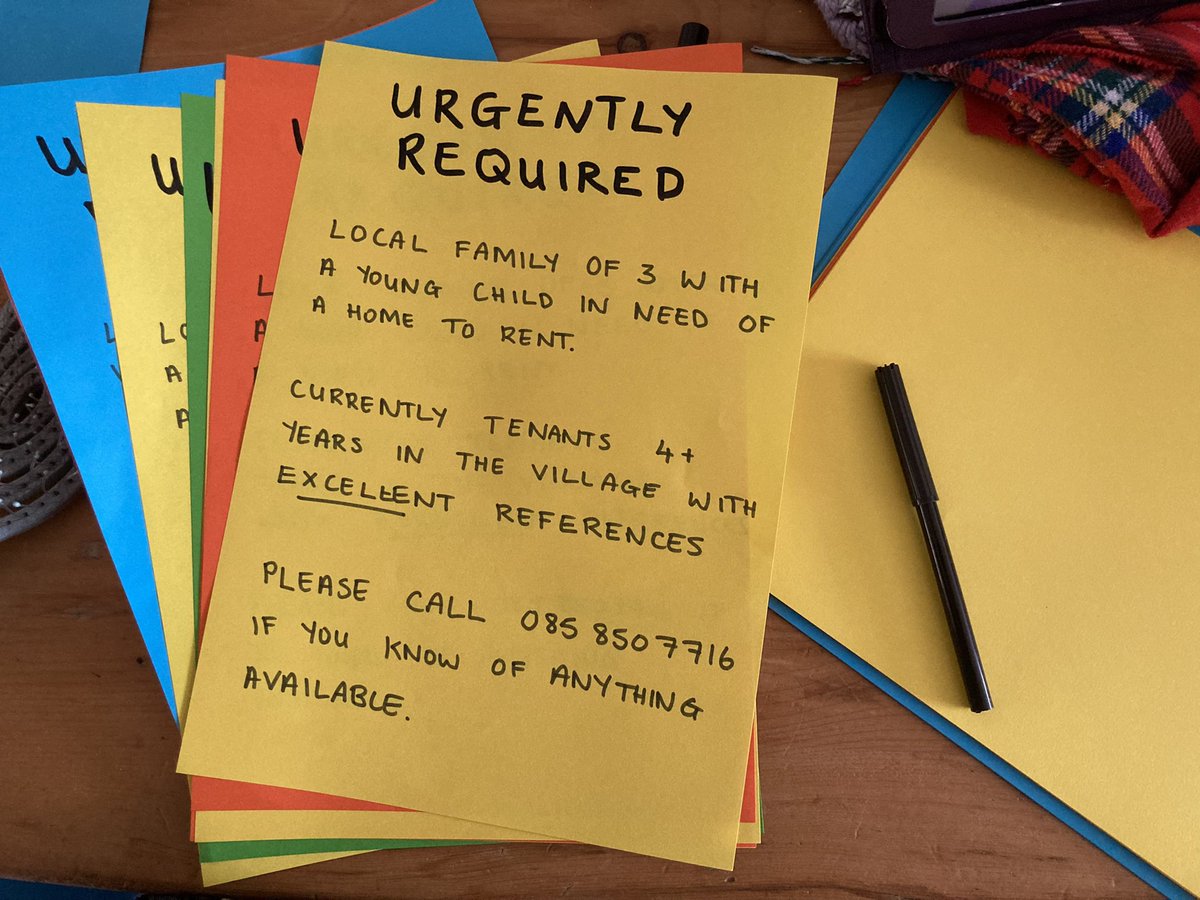 URGENTLY
REQUIRED
LOCAL FAMILY OF 3 WITH
A YOUNG CHILD IN NEED OF
A HOME TO RENT.
CURRENTLY TENANTS 4+
YEARS IN THE VILLAGE WITH
EXCELLENT REFERENCES
PLEASE CALL 085 850 7716
IF YOU KNOW OF ANYTHING
AVAILABLE.